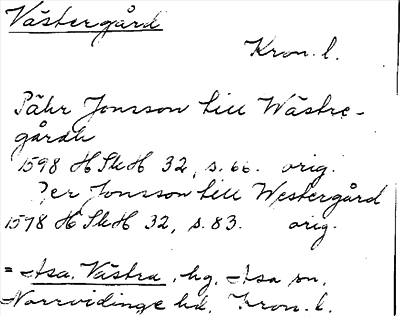 Västergård
Kron. l.
Pähr Jonsson till Wästre-
gårdh
1598 HSkH 32, s. 66. orig.
Per Jonsson till Westergård
1578 HSkH 32, s. 83. orig.
= Asa, Västra, hg, Asa sn,
Norrvidinge hd, Kron. l.